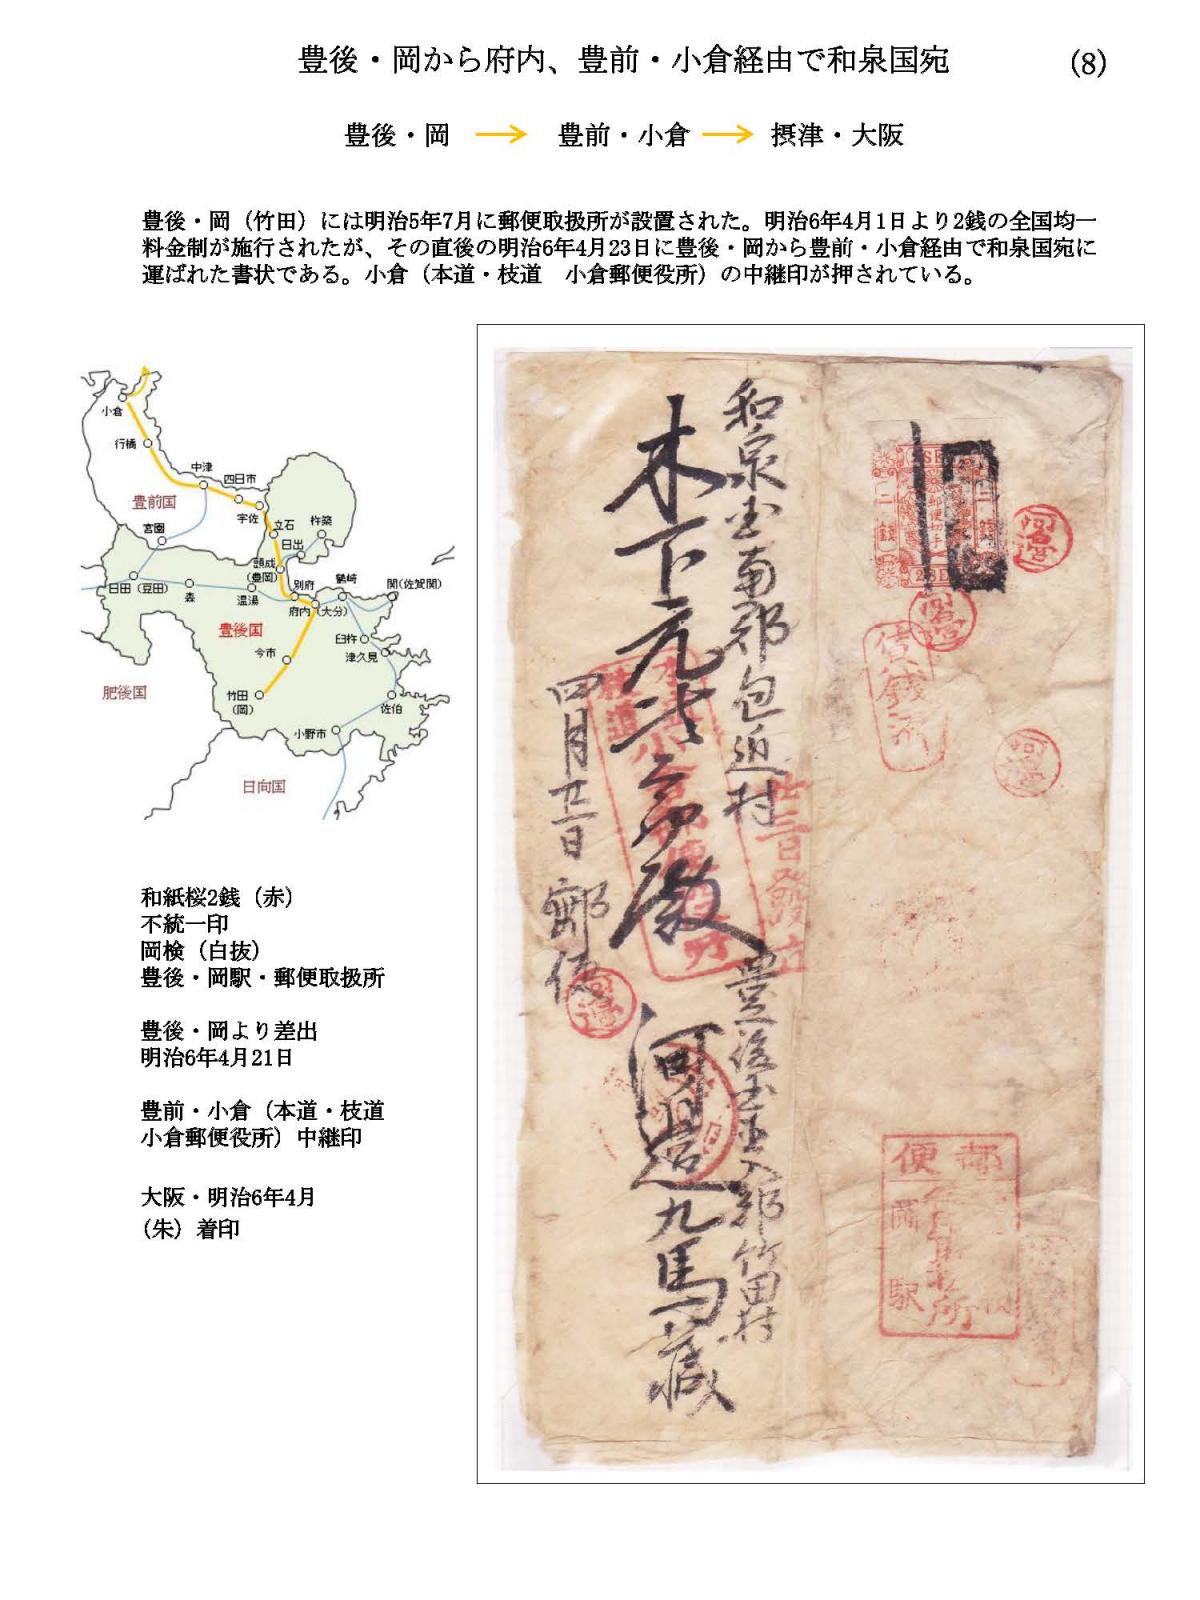 豊後・岡から府内、豊前・小倉経由で和泉国宛
(8)
豊後・岡 → 豊前・小倉 → 摂津・大阪
豊後・岡（竹田）には明治5年7月に郵便取扱所が設置された。明治6年4月1日より2銭の全国均一
料金制が施行されたが、その直後の明治6年4月23日に豊後・岡から豊前・小倉経由で和泉国宛に
運ばれた書状である。小倉（本道・枝道　小倉郵便役所）の中継印が押されている。
小倉
行橋
中津
四日市
豊前国
宇佐
宮園
立石
杵築
日出
頭成
(豊岡)
日田（豆田）
森
温湯
別府
鶴崎
関(佐賀関)
府内（大分）
豊後国
臼杵
今市
津久見
肥後国
竹田
（岡）
佐伯
小野市
日向国
和紙桜2銭（赤）
不統一印
岡検（白抜）
豊後・岡駅・郵便取扱所
豊後・岡より差出
明治6年4月21日
豊前・小倉（本道・枝道
小倉郵便役所）中継印
大阪・明治6年4月
（朱）着印
二銭
二銭
和泉国南郡包近村
木下元
殿
四月廿一日
郵便
豊後国直入郡竹田村
河邉九馬蔵
郵便
岡駅
所